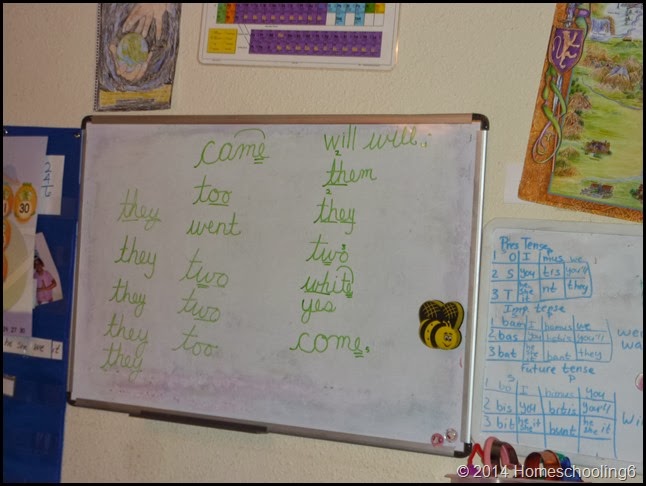 came will will.
too them
they went they
they two two
they two white
they too yes
they come
30
Pres Tense
1 O I mus we
2 S you tis you'll
3 T he she it nt they
Imp. tense
bam I bamus we
2 bas you you'll
3 bat he she bant they
future tense
S P
1 bo I bimus
2 bis you bitis you'll
3 bit he it she bunt he she it
© 2014 Homeschooling6